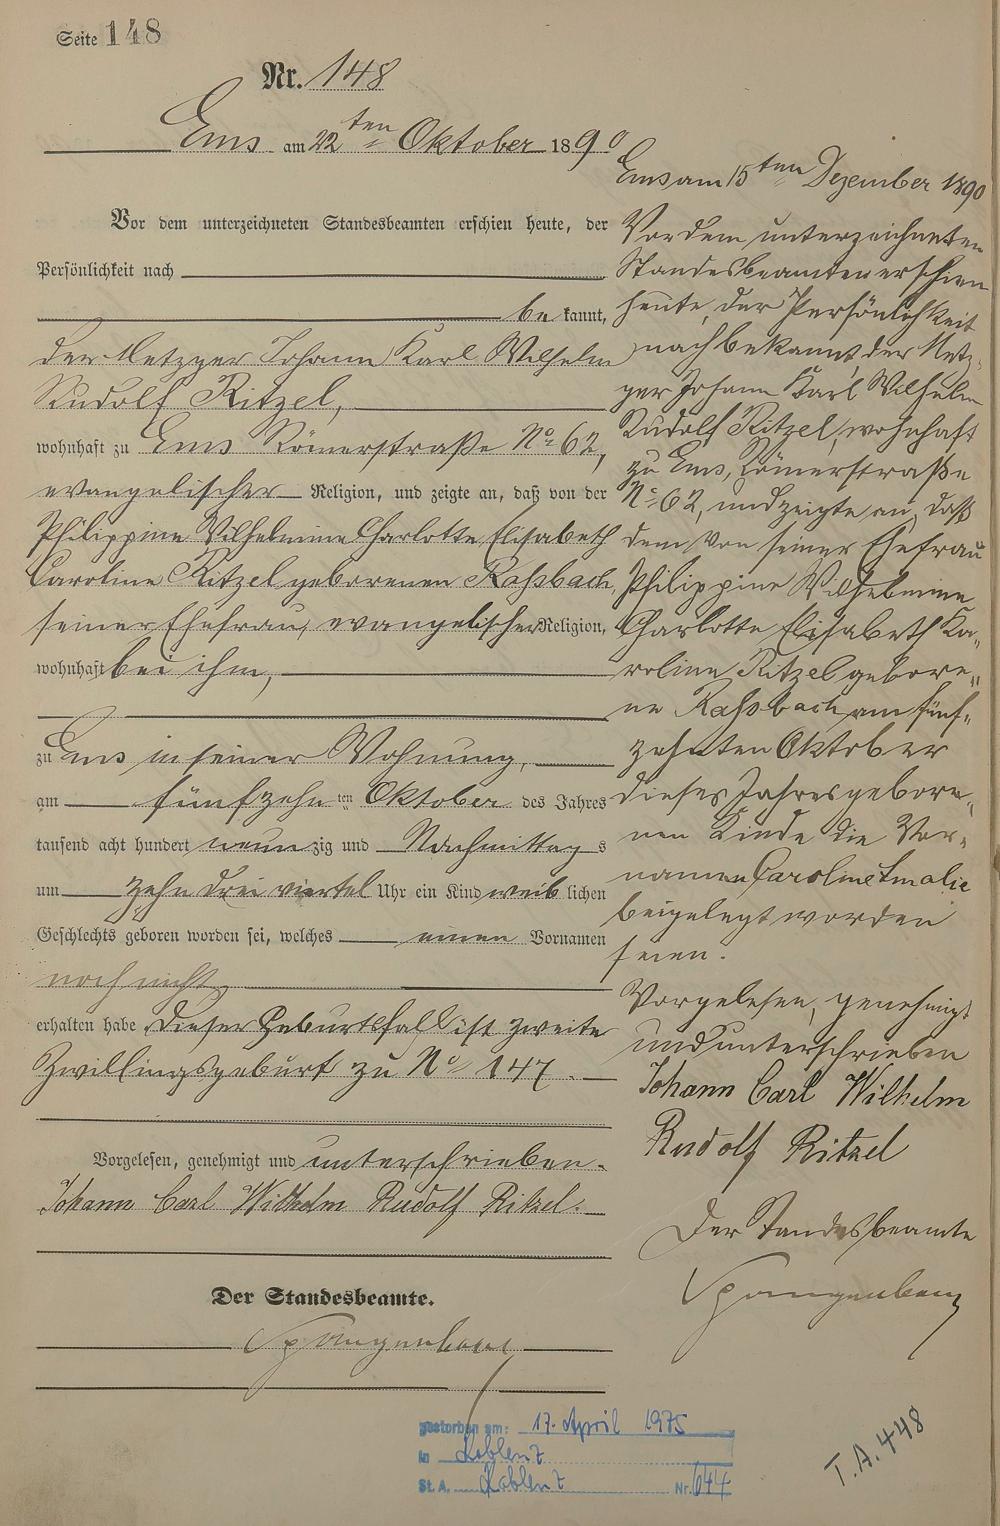 Seite 148
Nr. 148
Ems am 22ten Oktober 1890
Vor dem unterzeichneten Standesbeamten erschien heute, der
Persönlichkeit nach
be kannt,
der Metzger Johann Karl Wilhelm
Rudolf Ritzel,
wohnhaft zu Ems Römerstraße No 62,
evangelischer Religion, und zeigte an, daß von der
Philippine Wilhelmine Charlotte Elisabeth
Caroline Ritzel geborenen Raßbach,
seiner Ehefrau, evangelischer Religion,
wohnhaft bei ihm,
zu Ems in seiner Wohnung,
am fünfzehnten Oktober des Jahres
tausend acht hundert neunzig und Nachmittags
um zehn drei viertel Uhr ein Kind weiblichen
Geschlechts geboren worden sei, welches einen Vornamen
noch nicht
erhalten habe. Dieser Geburtsfall ist zweite
Zwillingsgeburt zu No 147.
Vorgelesen, genehmigt und unterschrieben.
Johann Carl Wilhelm Rudolf Ritzel.
Der Standesbeamte.
Spangenberg
Ems am 15ten Dezember 1890
Vor dem unterzeichneten
Standesbeamten erschien
heute, der Persönlichkeit
nach bekannt, der Metz-
ger Johann Karl Wilhelm
Rudolf Ritzel, wohnhaft
zu Ems, Römerstraße
No 62, und zeigte an, daß
dem von seiner Ehefrau
Philippine Wilhelmine
Charlotte Elisabeth Ka-
roline Ritzel gebore-
ne Raßbach am fünf-
zehnten Oktober
dieses Jahres gebore-
nen Kinde die Vor-
namen Caroline Amalie
beigelegt worden
seien.
Vorgelesen, genehmigt
und unterschrieben
Johann Carl Wilhelm
Rudolf Ritzel
Der Standesbeamte
Spangenberg
gestorben am: 17. April 1975
in Koblenz
St. A. Koblenz Nr. 644
T.A. 448